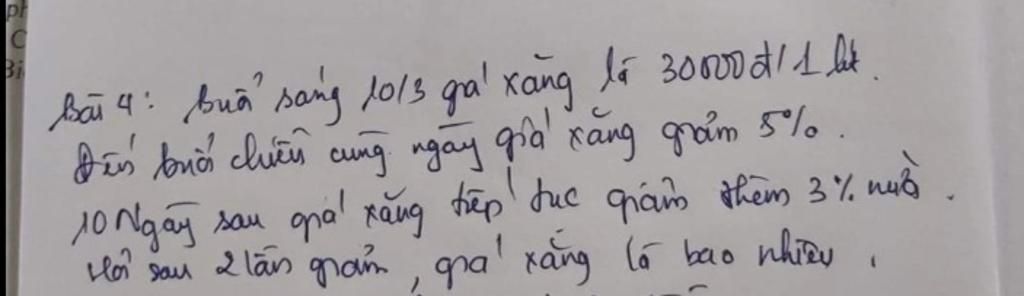 ph
C
Bi
Bài 4: buổi sáng 10/3 giá xăng là 30000đ/1 lít.
Đến buổi chiều cùng ngày giá xăng giảm 5%.
10 Ngày sau giá xăng tiếp tục giảm thêm 3% nữa.
Hỏi sau 2 lần giảm, giá xăng là bao nhiêu.